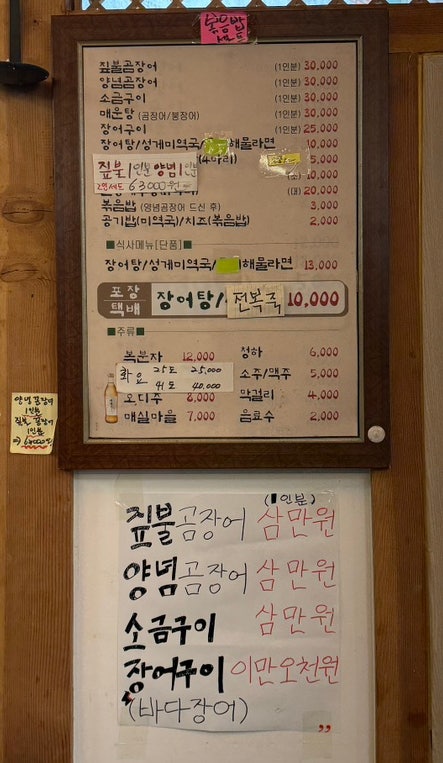 볶음밥
세트
짚불곰장어 (1인분) 30,000
양념곰장어 (1인분) 30,000
소금구이 (1인분) 30,000
매운탕 (곰장어/붕장어) (1인분) 30,000
장어구이 (1인분) 25,000
장어탕/성게미역국/해물라면 10,000
(4마리) 5,000
짚불 1인분 양념 1인분
2명세트 63000원
(소) 10,000
(대) 20,000
볶음밥 (양념곰장어 드신 후) 3,000
공기밥(미역국)/치즈(볶음밥) 2,000
■식사메뉴[단품]■
장어탕/성게미역국/해물라면 13,000
포장
택배
장어탕/전복죽 10,000
■주류■
복분자 12,000
화요 25도 25,000
41도 40,000
오디주 8,000
매실마을 7,000
청하 6,000
소주/맥주 5,000
막걸리 4,000
음료수 2,000
양념 곰장어
1인분
짚불 곰장어
1인분
(1인분)
짚불곰장어 삼만원
양념곰장어 삼만원
소금구이 삼만원
장어구이 이만오천원
(바다장어) ”